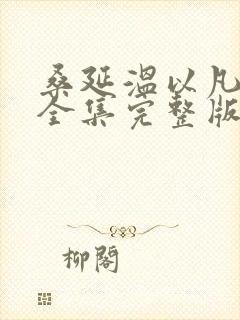 桑延温以凡
全集完整版
柳阁